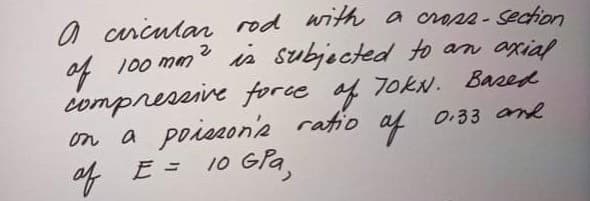 A circular rod with a cross-section
of 100 mm² is subjected to an axial
compressive force of 70kN. Based
on a poisson's ratio of 0.33 and
of E = 10 GPa,